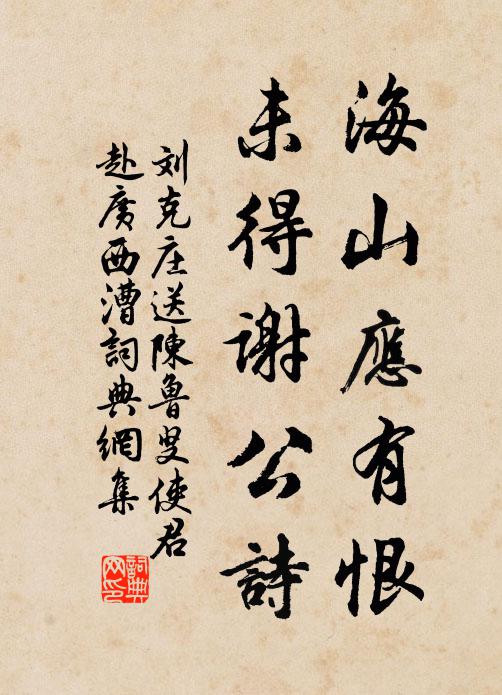 海山應有恨
未得謝公詩
刘克庄送陳魯叟使君
赴廣西漕詞典網集
詞典网印